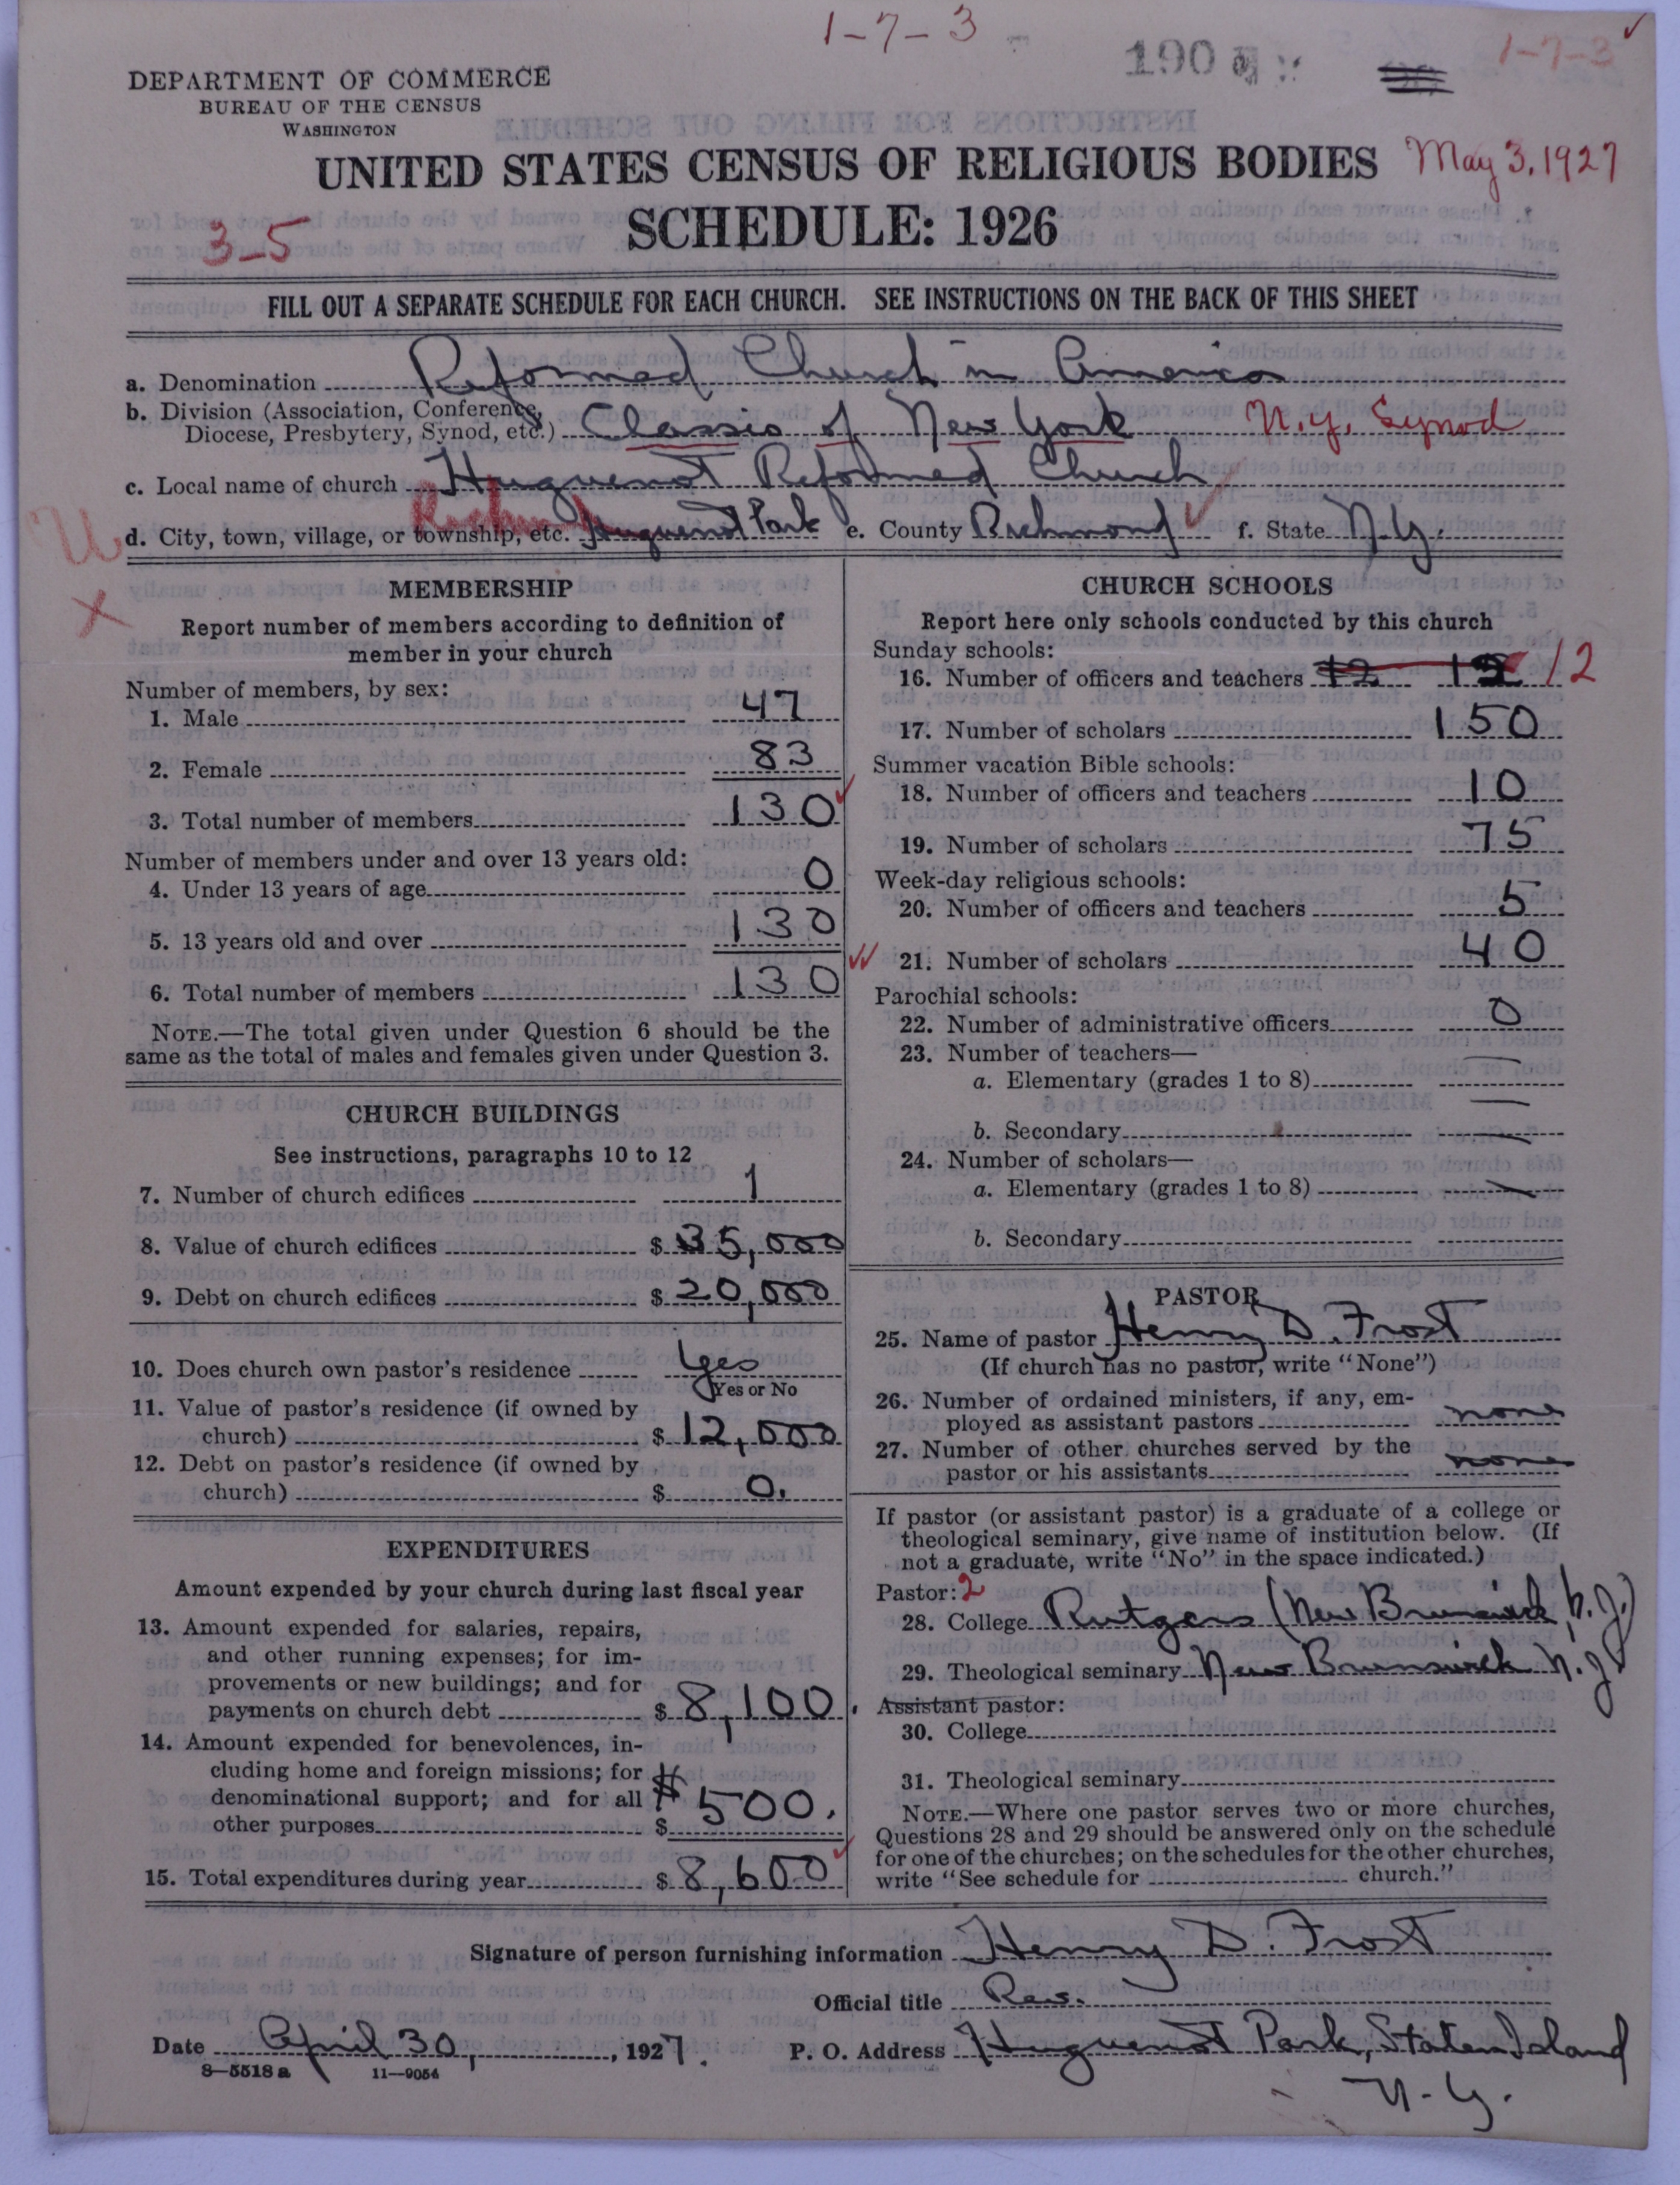 1-7-3
190
1-7-3
DEPARTMENT OF COMMERCE
BUREAU OF THE CENSUS
WASHINGTON
UNITED STATES CENSUS OF RELIGIOUS BODIES May 3, 1927
SCHEDULE: 1926
3-5
FILL OUT A SEPARATE SCHEDULE FOR EACH CHURCH. SEE INSTRUCTIONS ON THE BACK OF THIS SHEET
a. Denomination Reformed Church in America
b. Division (Association, Conference,
Diocese, Presbytery, Synod, etc.) Classis of New York N.Y. Synod
c. Local name of church Huguenot Reformed Church
d. City, town, village, or township, etc. Huguenot Park e. County Richmond f. State N.Y.
MEMBERSHIP
Report number of members according to definition of
member in your church
Number of members, by sex:
1. Male 47
2. Female 83
3. Total number of members 130
Number of members under and over 13 years old:
4. Under 13 years of age 0
5. 13 years old and over 130
6. Total number of members 130
NOTE.—The total given under Question 6 should be the
same as the total of males and females given under Question 3.
CHURCH BUILDINGS
See instructions, paragraphs 10 to 12
7. Number of church edifices 1
8. Value of church edifices $ 35,000
9. Debt on church edifices $ 20,000
10. Does church own pastor's residence Yes
Yes or No
11. Value of pastor's residence (if owned by
church) $ 12,000
12. Debt on pastor's residence (if owned by
church) $ 0.
EXPENDITURES
Amount expended by your church during last fiscal year
13. Amount expended for salaries, repairs,
and other running expenses; for im-
provements or new buildings; and for
payments on church debt $ 8,100.
14. Amount expended for benevolences, in-
cluding home and foreign missions; for
denominational support; and for all $ 500.
other purposes $
15. Total expenditures during year $ 8,600
CHURCH SCHOOLS
Report here only schools conducted by this church
Sunday schools:
16. Number of officers and teachers 12 12 12
17. Number of scholars 150
Summer vacation Bible schools:
18. Number of officers and teachers 10
19. Number of scholars 75
Week-day religious schools:
20. Number of officers and teachers 5
21. Number of scholars 40
Parochial schools:
22. Number of administrative officers 0
23. Number of teachers—
a. Elementary (grades 1 to 8) —
b. Secondary —
24. Number of scholars—
a. Elementary (grades 1 to 8) —
b. Secondary
PASTOR
25. Name of pastor Henry D. Frost
(If church has no pastor, write "None")
26. Number of ordained ministers, if any, em-
ployed as assistant pastors none
27. Number of other churches served by the
pastor or his assistants none
If pastor (or assistant pastor) is a graduate of a college or
theological seminary, give name of institution below. (If
not a graduate, write "No" in the space indicated.)
Pastor: 2
28. College Rutgers (New Brunswick, N.J.)
29. Theological seminary New Brunswick N.J.
Assistant pastor:
30. College
31. Theological seminary
NOTE.—Where one pastor serves two or more churches,
Questions 28 and 29 should be answered only on the schedule
for one of the churches; on the schedules for the other churches,
write "See schedule for church."
Signature of person furnishing information Henry D. Frost
Official title Rev.
Date April 30, 1927. P. O. Address Huguenot Park, Staten Island
N.Y.
8-5518 a 11-9054